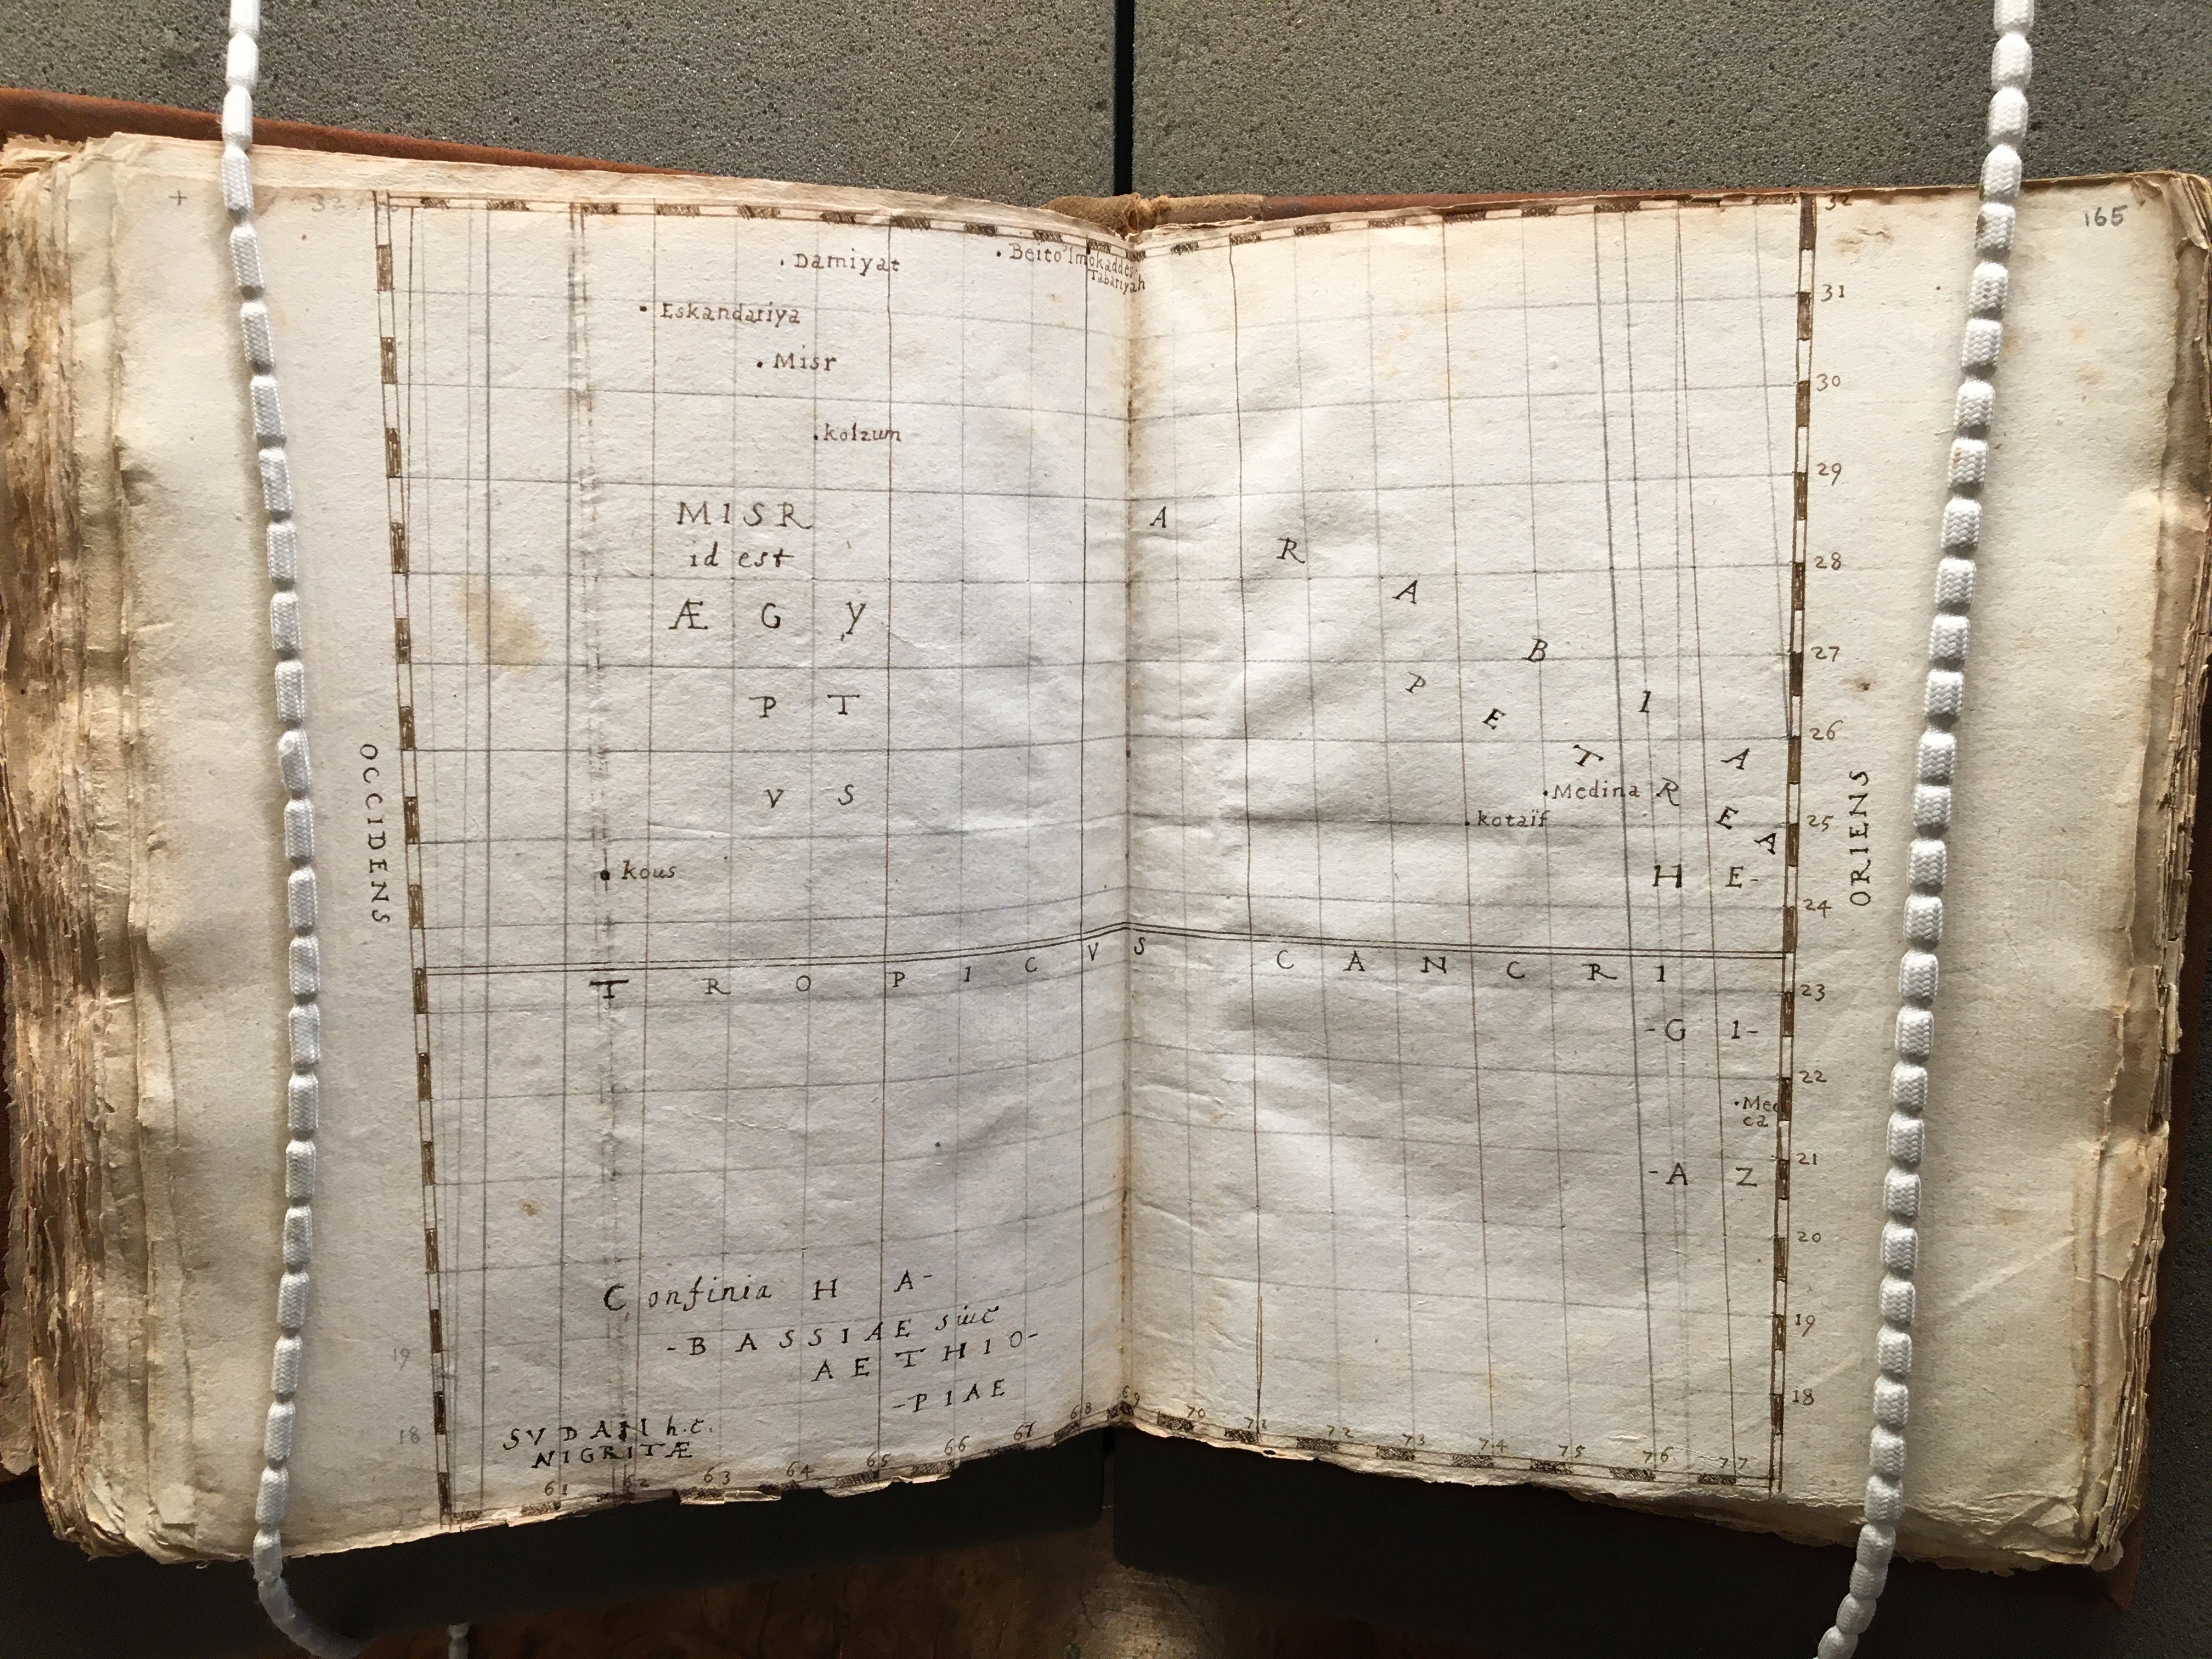 165
32
. Damiyat
. Beito'lmokaddes
Tabariyah
. Eskandariya
. Misr
. kolzum
31
30
29
28
27
26
25
24
23
22
21
20
19
18
MISR
id est
Æ G Y
P T
V S
A R A B I A
P E T R E A
. Medina
. kotaïf
. kous
H E-
OCCIDENS
ORIENS
TROPICVS CANCRI
-G I-
. Mec
ca
-A Z
Confinia H A-
-BASSIAE siue
AETHIO-
-PIAE
SVDAN h.e.
NIGRITÆ
19
18
61 62 63 64 65 66 67 68 69 70 71 72 73 74 75 76 77